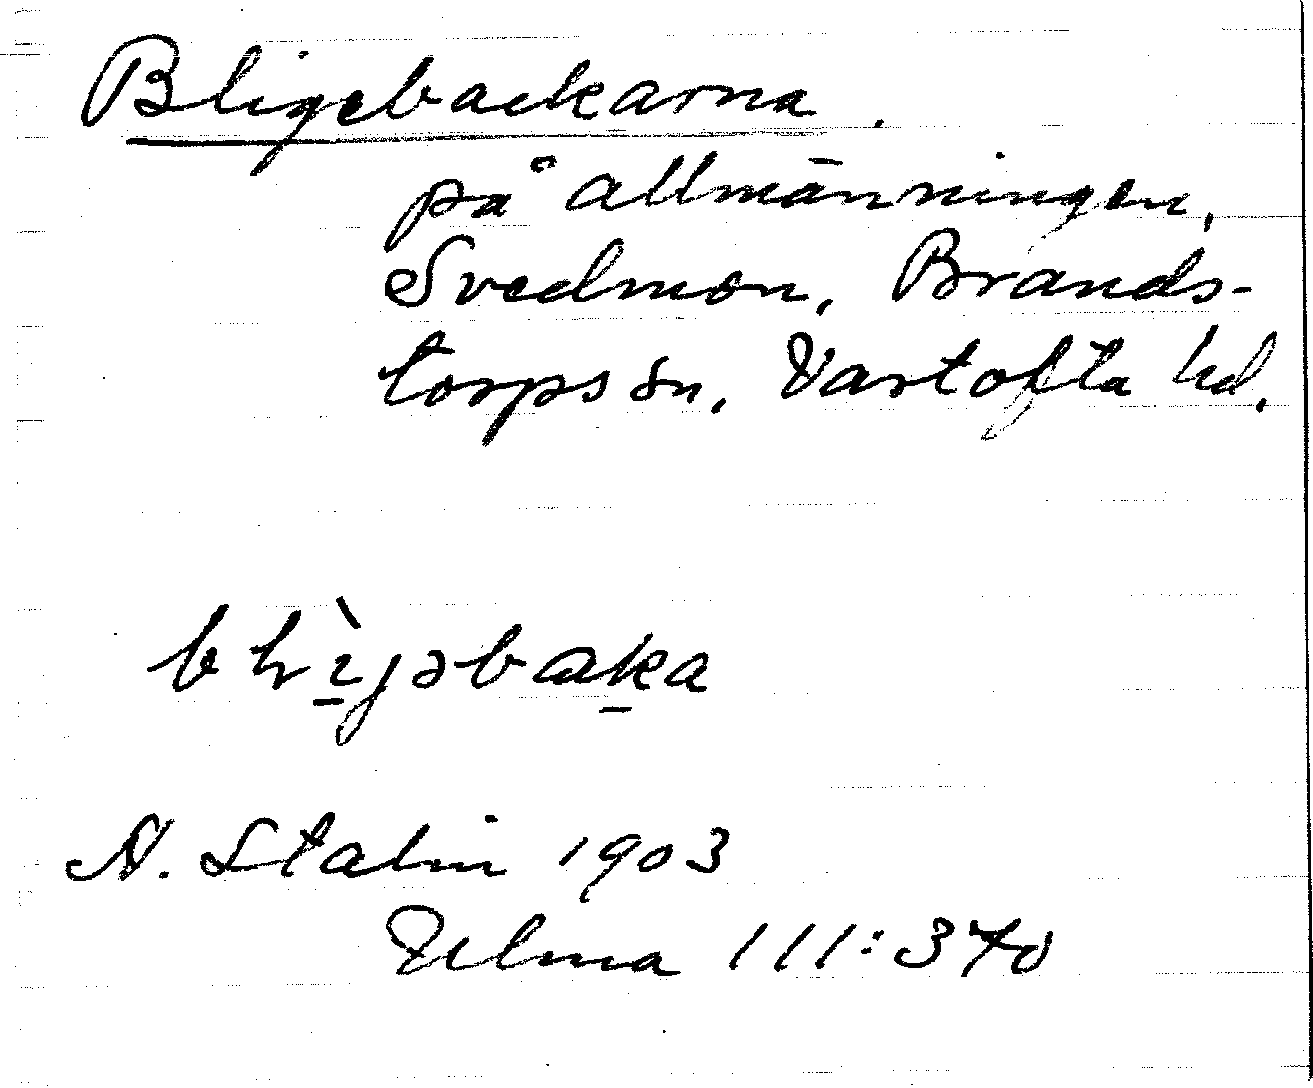 Bligebackarna.
på allmänningen,
Svedmon, Brands-
torps sn, Vartofta hd.
N. Stalin 1903
Ulma 111:370